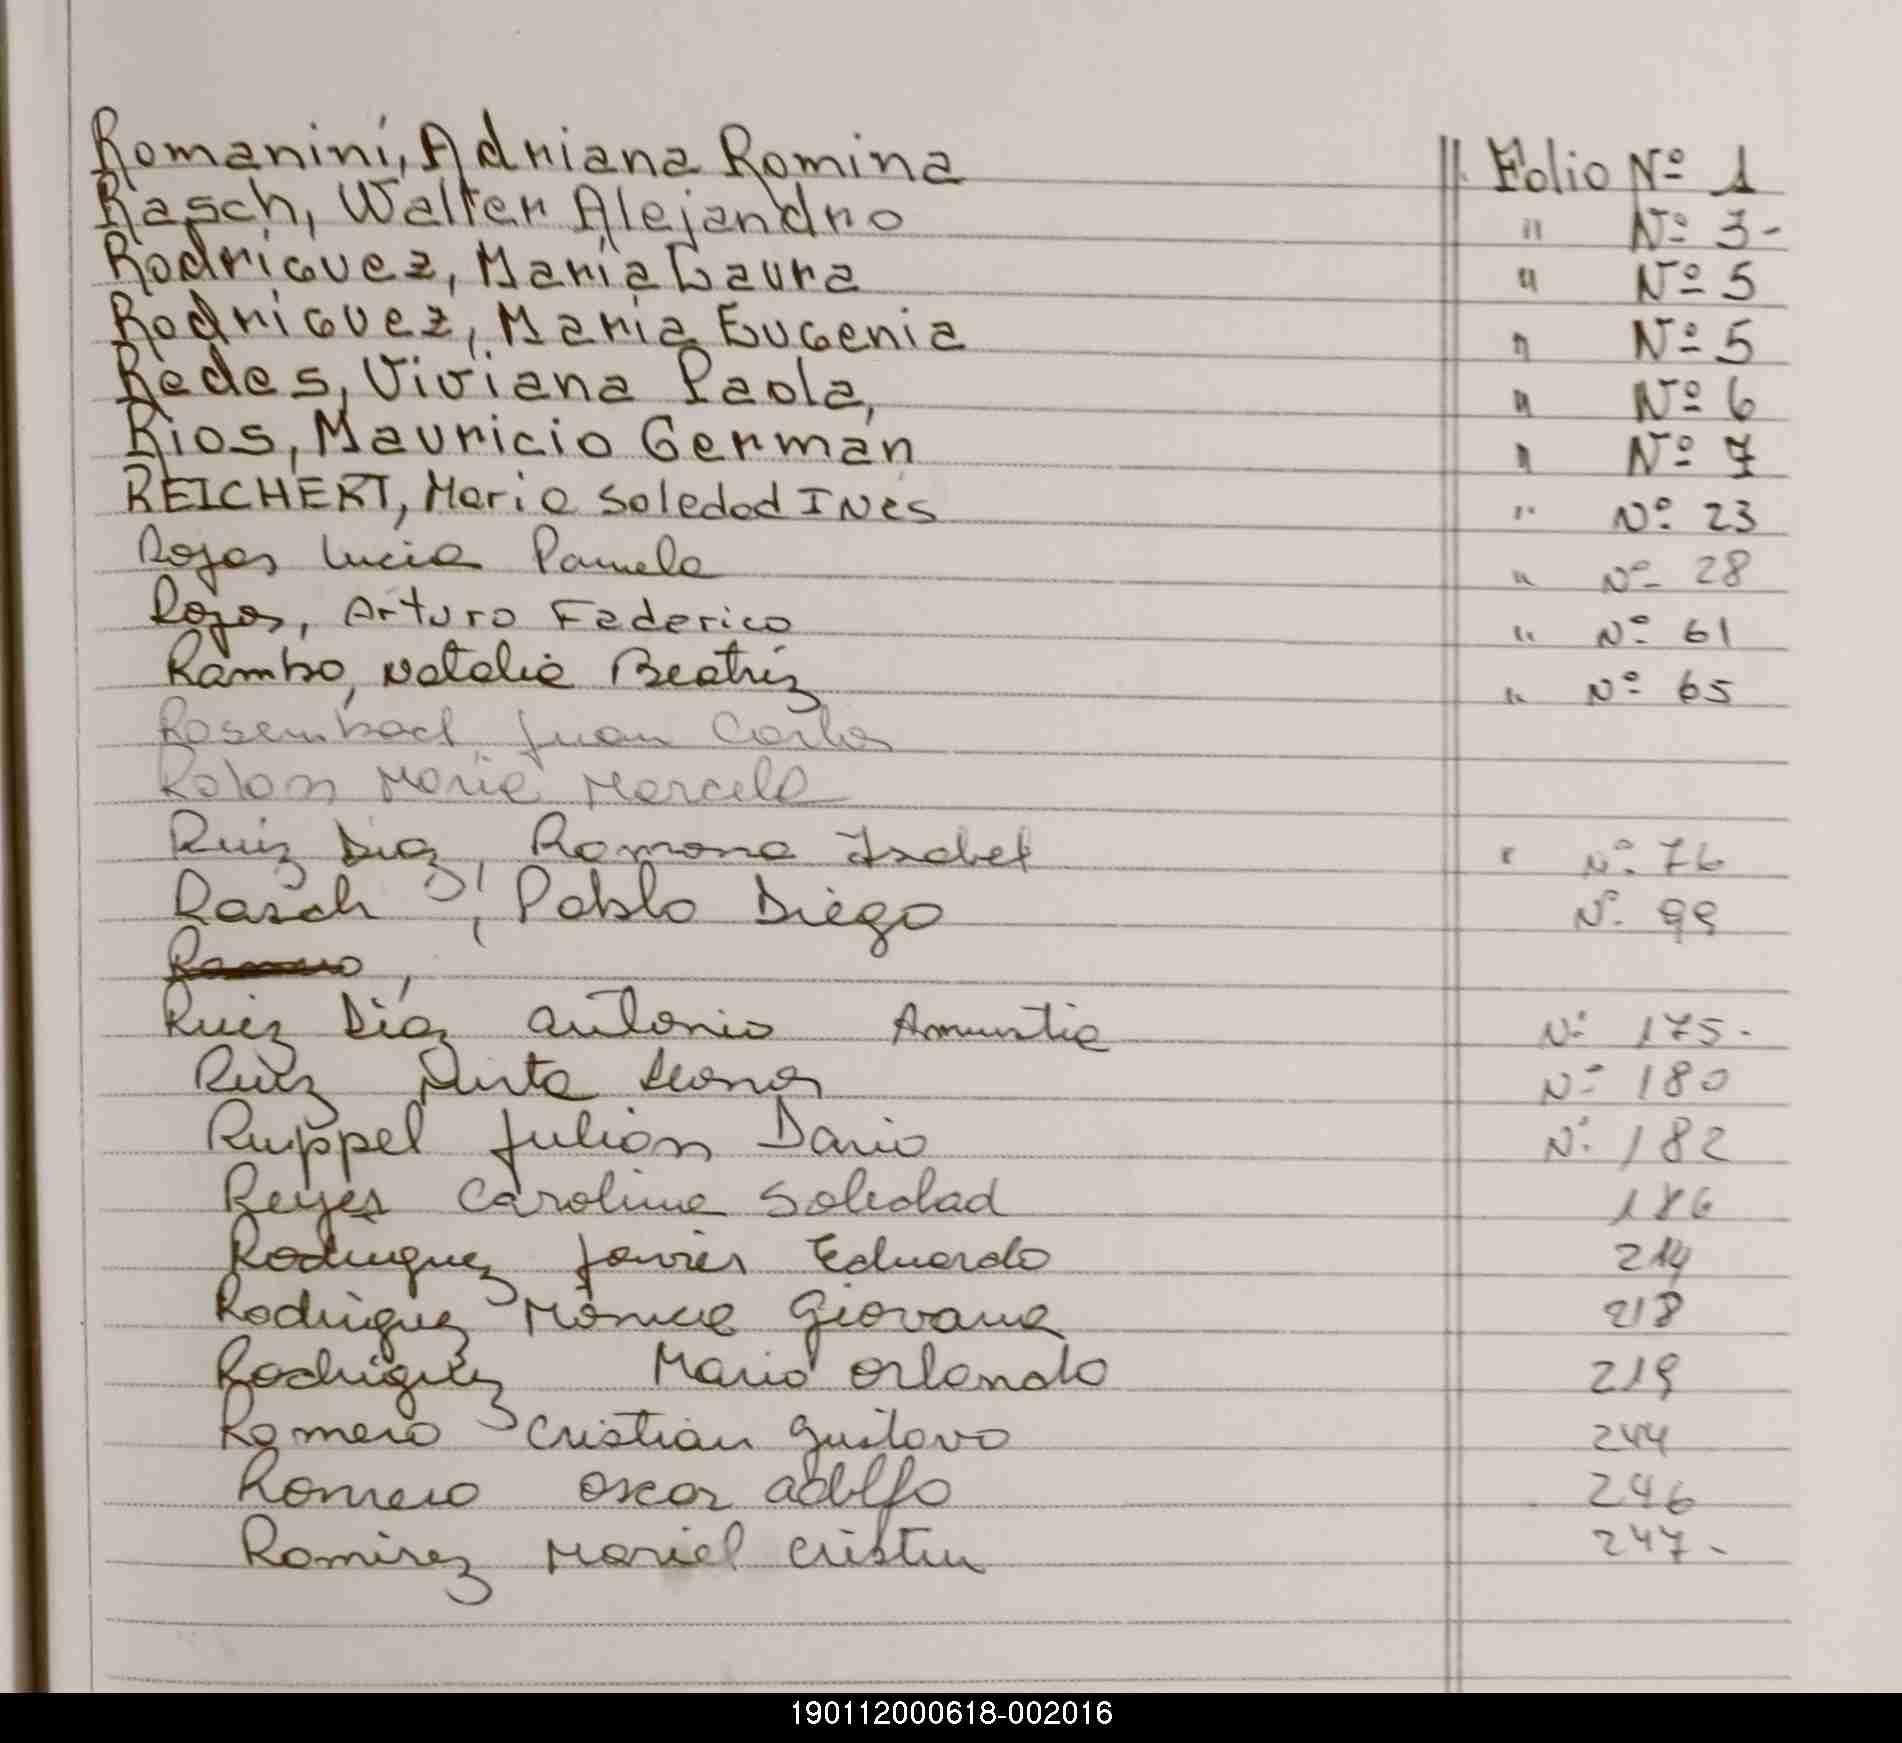 Romanini, Adriana Romina Folio Nº 1
Rasch, Walter Alejandro " Nº 3-
Rodriguez, María Laura " Nº 5
Rodriguez, María Eugenia " Nº 5
Redes, Viviana Paola, " Nº 6
Rios, Mauricio Germán " Nº 7
REICHERT, Maria Soledad INés " Nº 23
Rojas Lucia Pamela " Nº 28
Rojas, Arturo Federico " Nº 61
Rambo, Natalia Beatriz " Nº 65
Rosembach Juan Carlos
Rolon Maria Marcela
Ruiz Diaz, Ramona Isabel " Nº 76
Rasch, Pablo Diego Nº 99
Ruiz Díaz Antonio Nº 175-
Ruiz Mirta Leonor Nº 180
Ruppel Julián Dario Nº 182
Reyes Carolina Soledad 186
Rodriguez Javier Eduardo 214
Rodriguez Mónica Giovana 218
Rodriguez Mario Orlando 219
Romero Cristian Gustavo 244
Romero Oscar Adolfo 246
Ramirez Mariel Cristin 247-
190112000618-002016